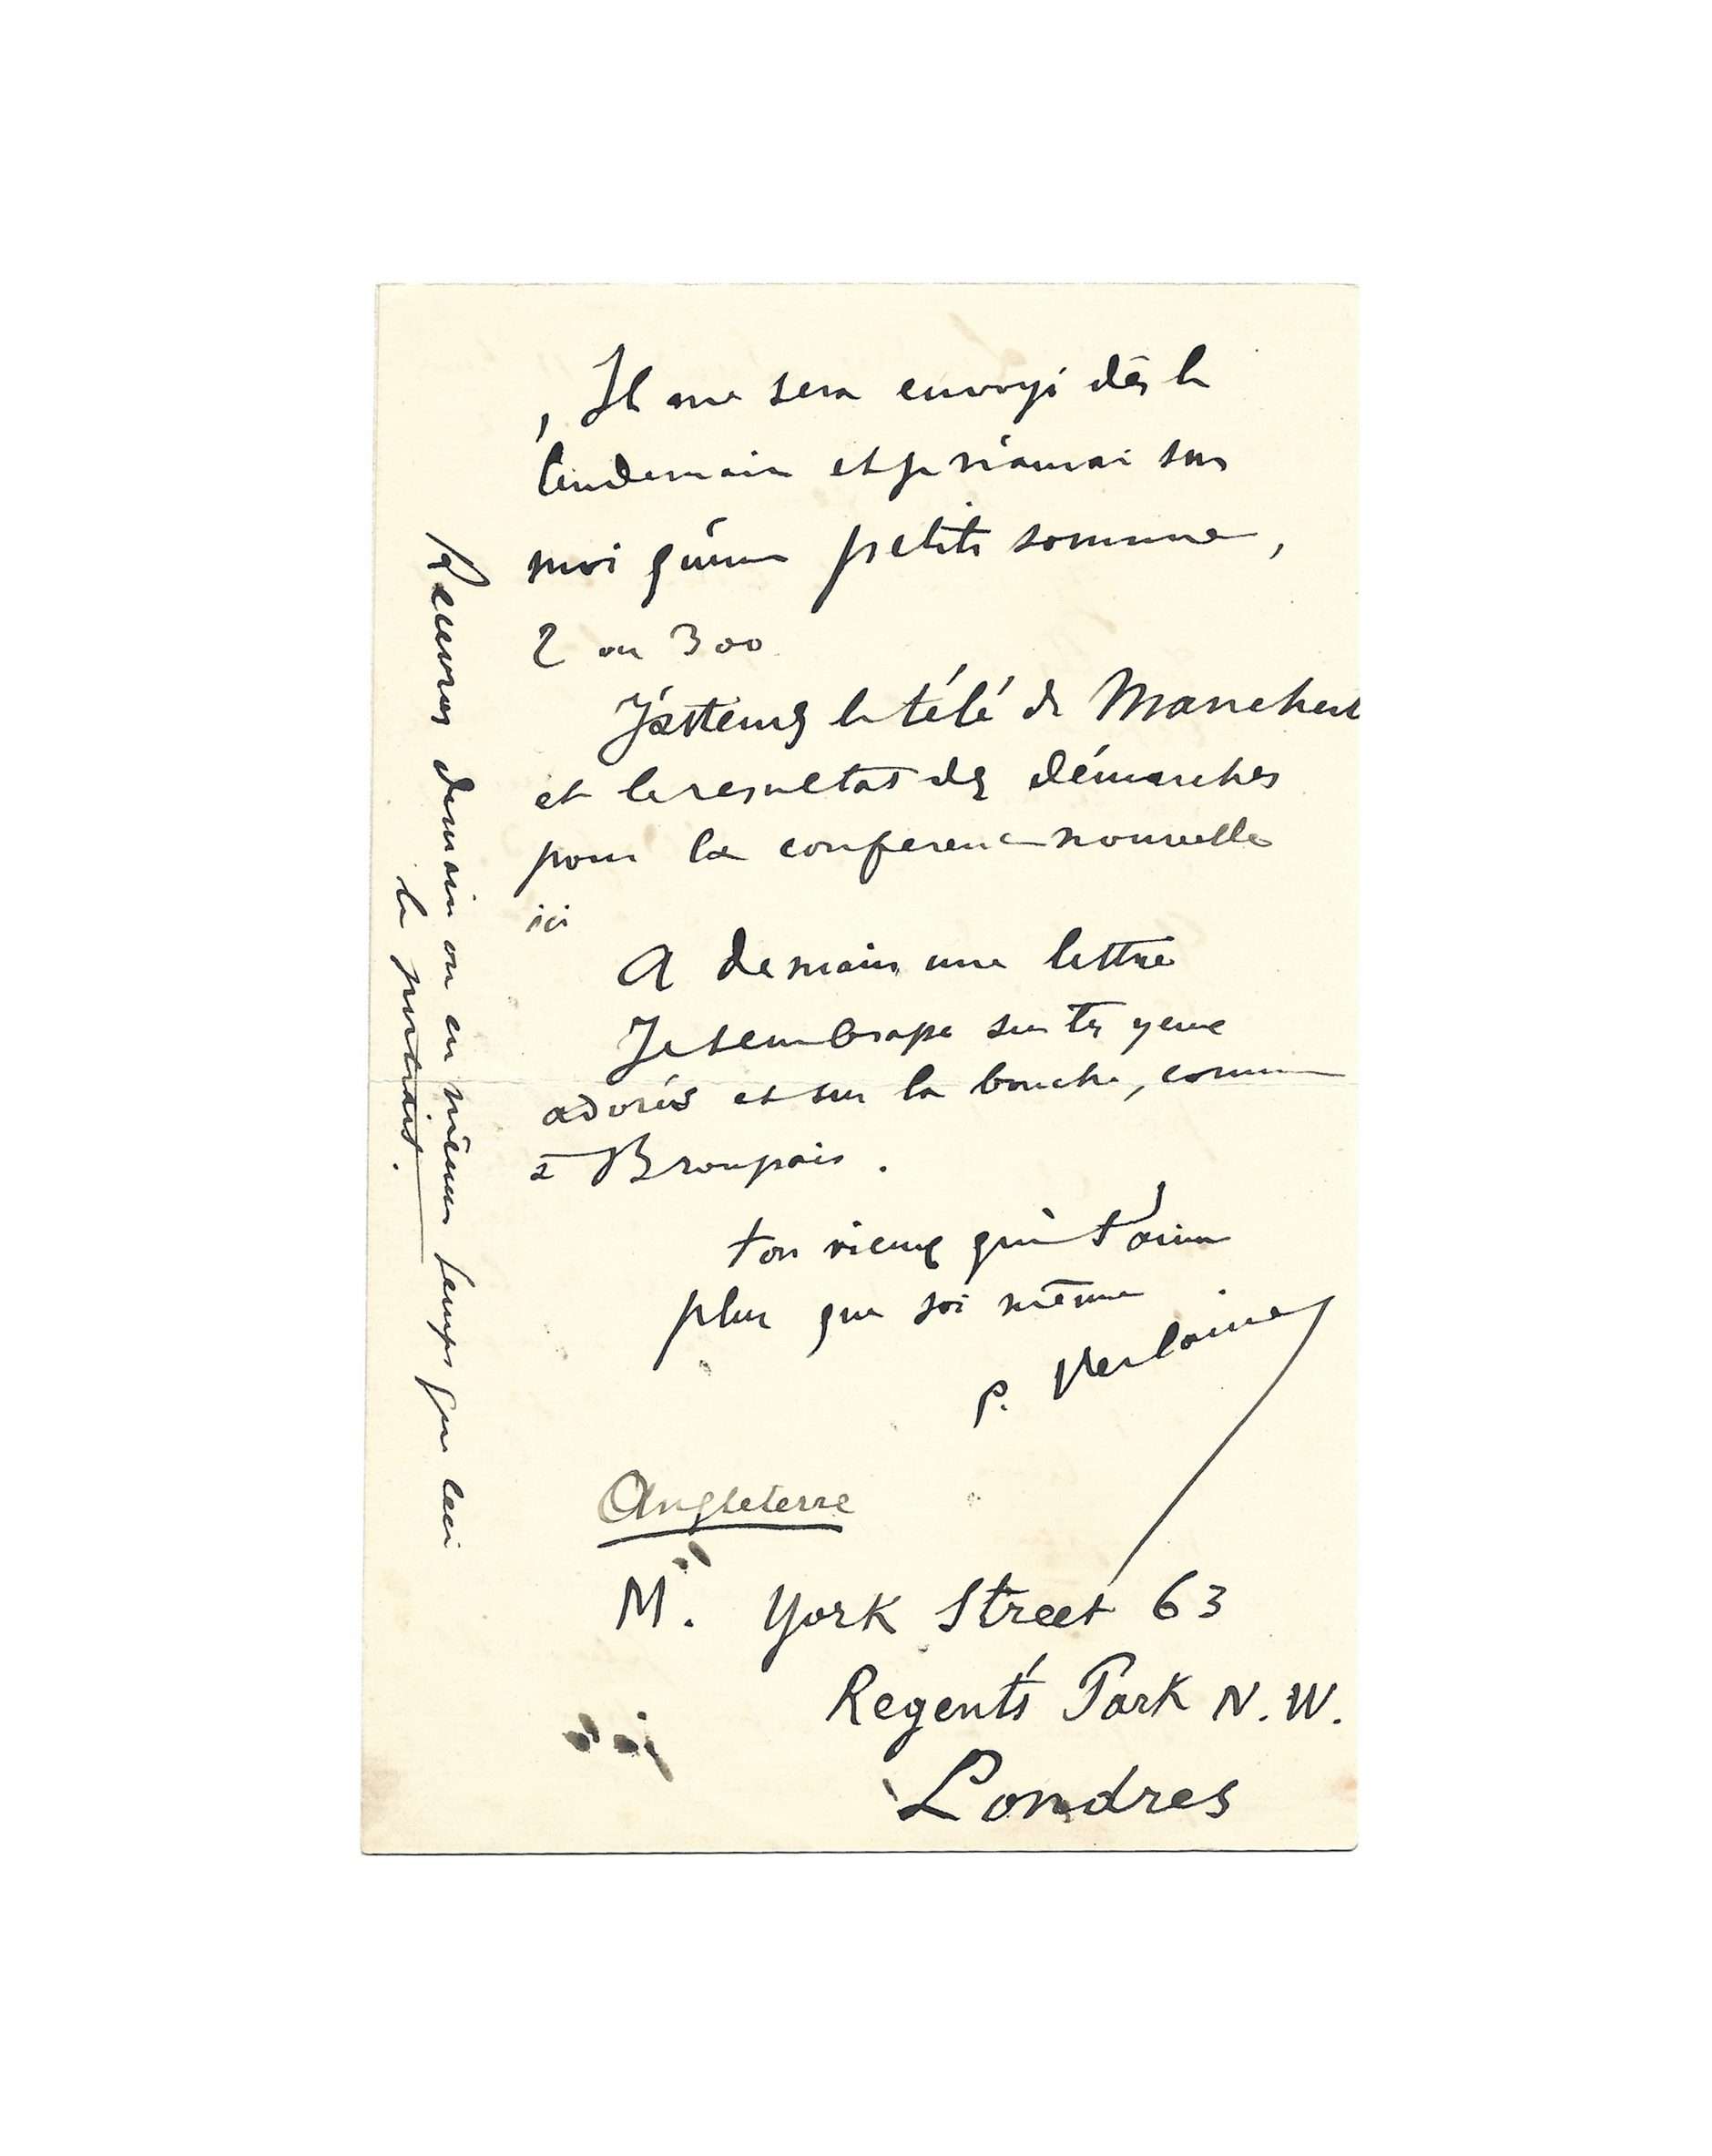 , Il me sera envoyé dès le
lendemain et je n'aurai sur
moi qu'une petite somme,
2 ou 300
J'attends le télé de Manchest
et le resultat des démarches
pour la conference nouvelle
ici
A demain une lettre
Je t'embrasse sur tes yeux
adorés et sur la bouche, comme
à Broussais.
ton vieux qui t'aime
plus que soi même
P. Verlaine
Angleterre
M. York Street 63
Regent's Park N.W.
Londres
Recevras demain ou en même temps que ceci
le